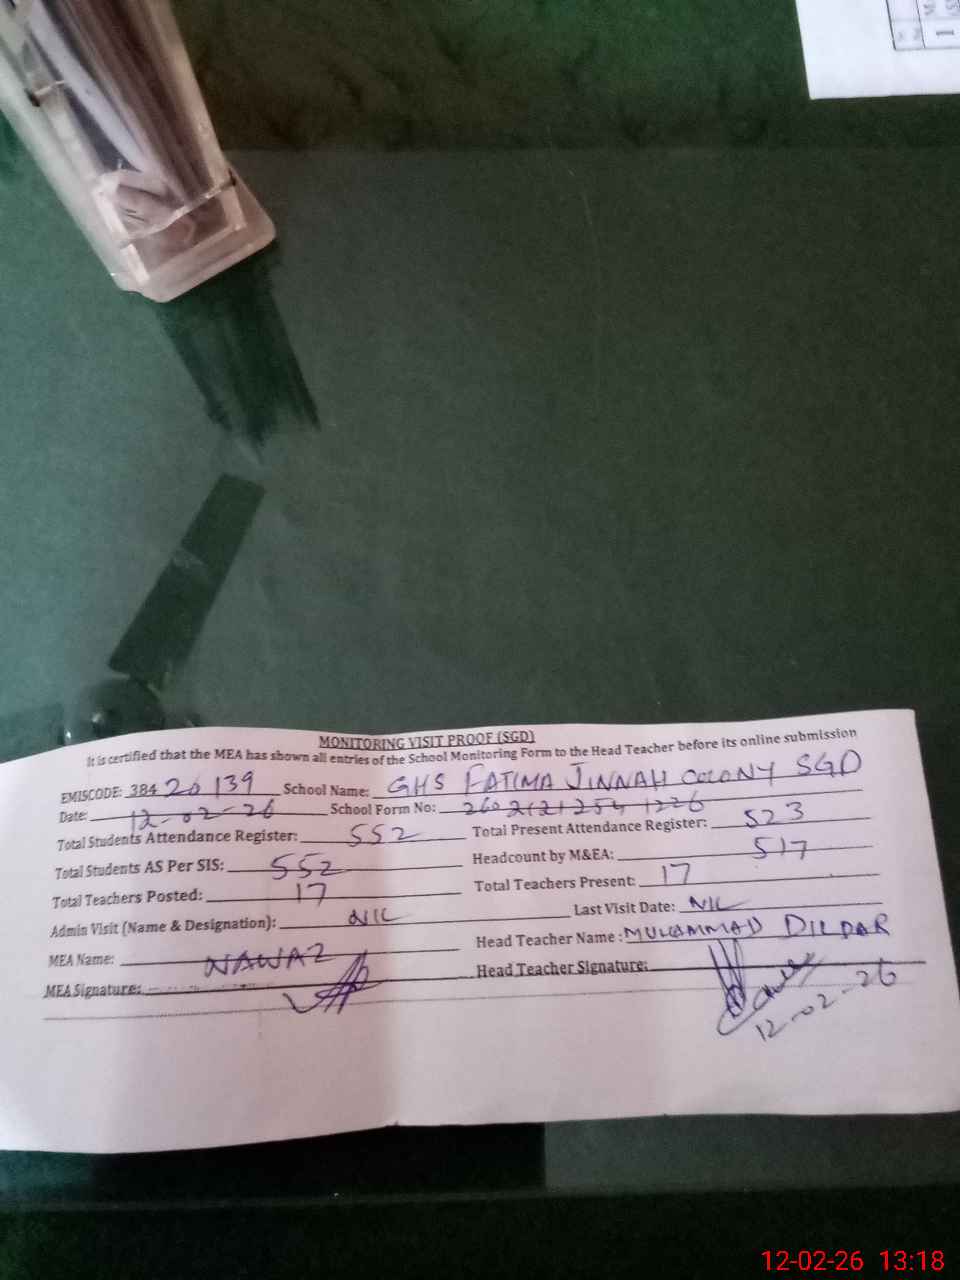 MONITORING VISIT PROOF (SGD)
It is certified that the MEA has shown all entries of the School Monitoring Form to the Head Teacher before its online submission
EMISCODE: 384 20139 School Name: GHS FATIMA JINNAH COLONY SGD
Date: 12-02-26 School Form No:
Total Students Attendance Register: 552 Total Present Attendance Register: 523
Total Students AS Per SIS: 552 Headcount by M&EA: 517
Total Teachers Posted: 17 Total Teachers Present: 17
Admin Visit (Name & Designation): NIL Last Visit Date: NIL
MEA Name: NAWAZ Head Teacher Name: MUHAMMAD DILDAR
MEA Signature: Head Teacher Signature:
12-02-26
12-02-26 13:18